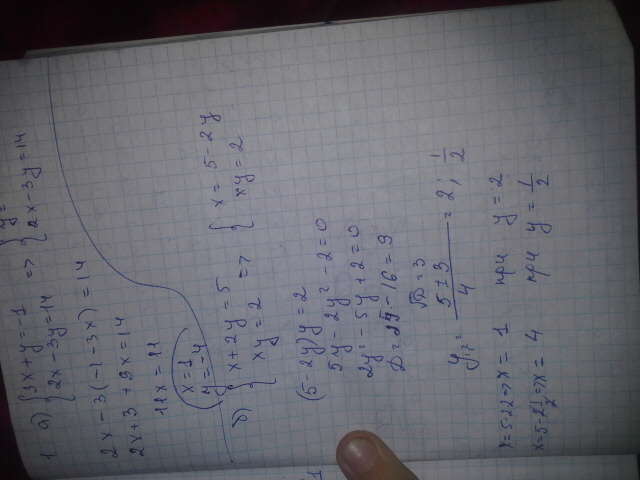 1. а) { 3x + y = -1 => { y =
2x - 3y = 14 2x - 3y = 14
2x - 3(-1 - 3x) = 14
2x + 3 + 9x = 14
11x = 11
x = 1
y = -4
б) { x + 2y = 5 => { x = 5 - 2y
xy = 2 xy = 2
(5 - 2y)y = 2
5y - 2y² - 2 = 0
2y² - 5y + 2 = 0
D = 25 - 16 = 9
√D = 3
y₁,₂ = (5 ± 3)/4 = 2; 1/2
x = 5 - 2·2 => x = 1 при y = 2
x = 5 - 2·1/2 => x = 4 при y = 1/2